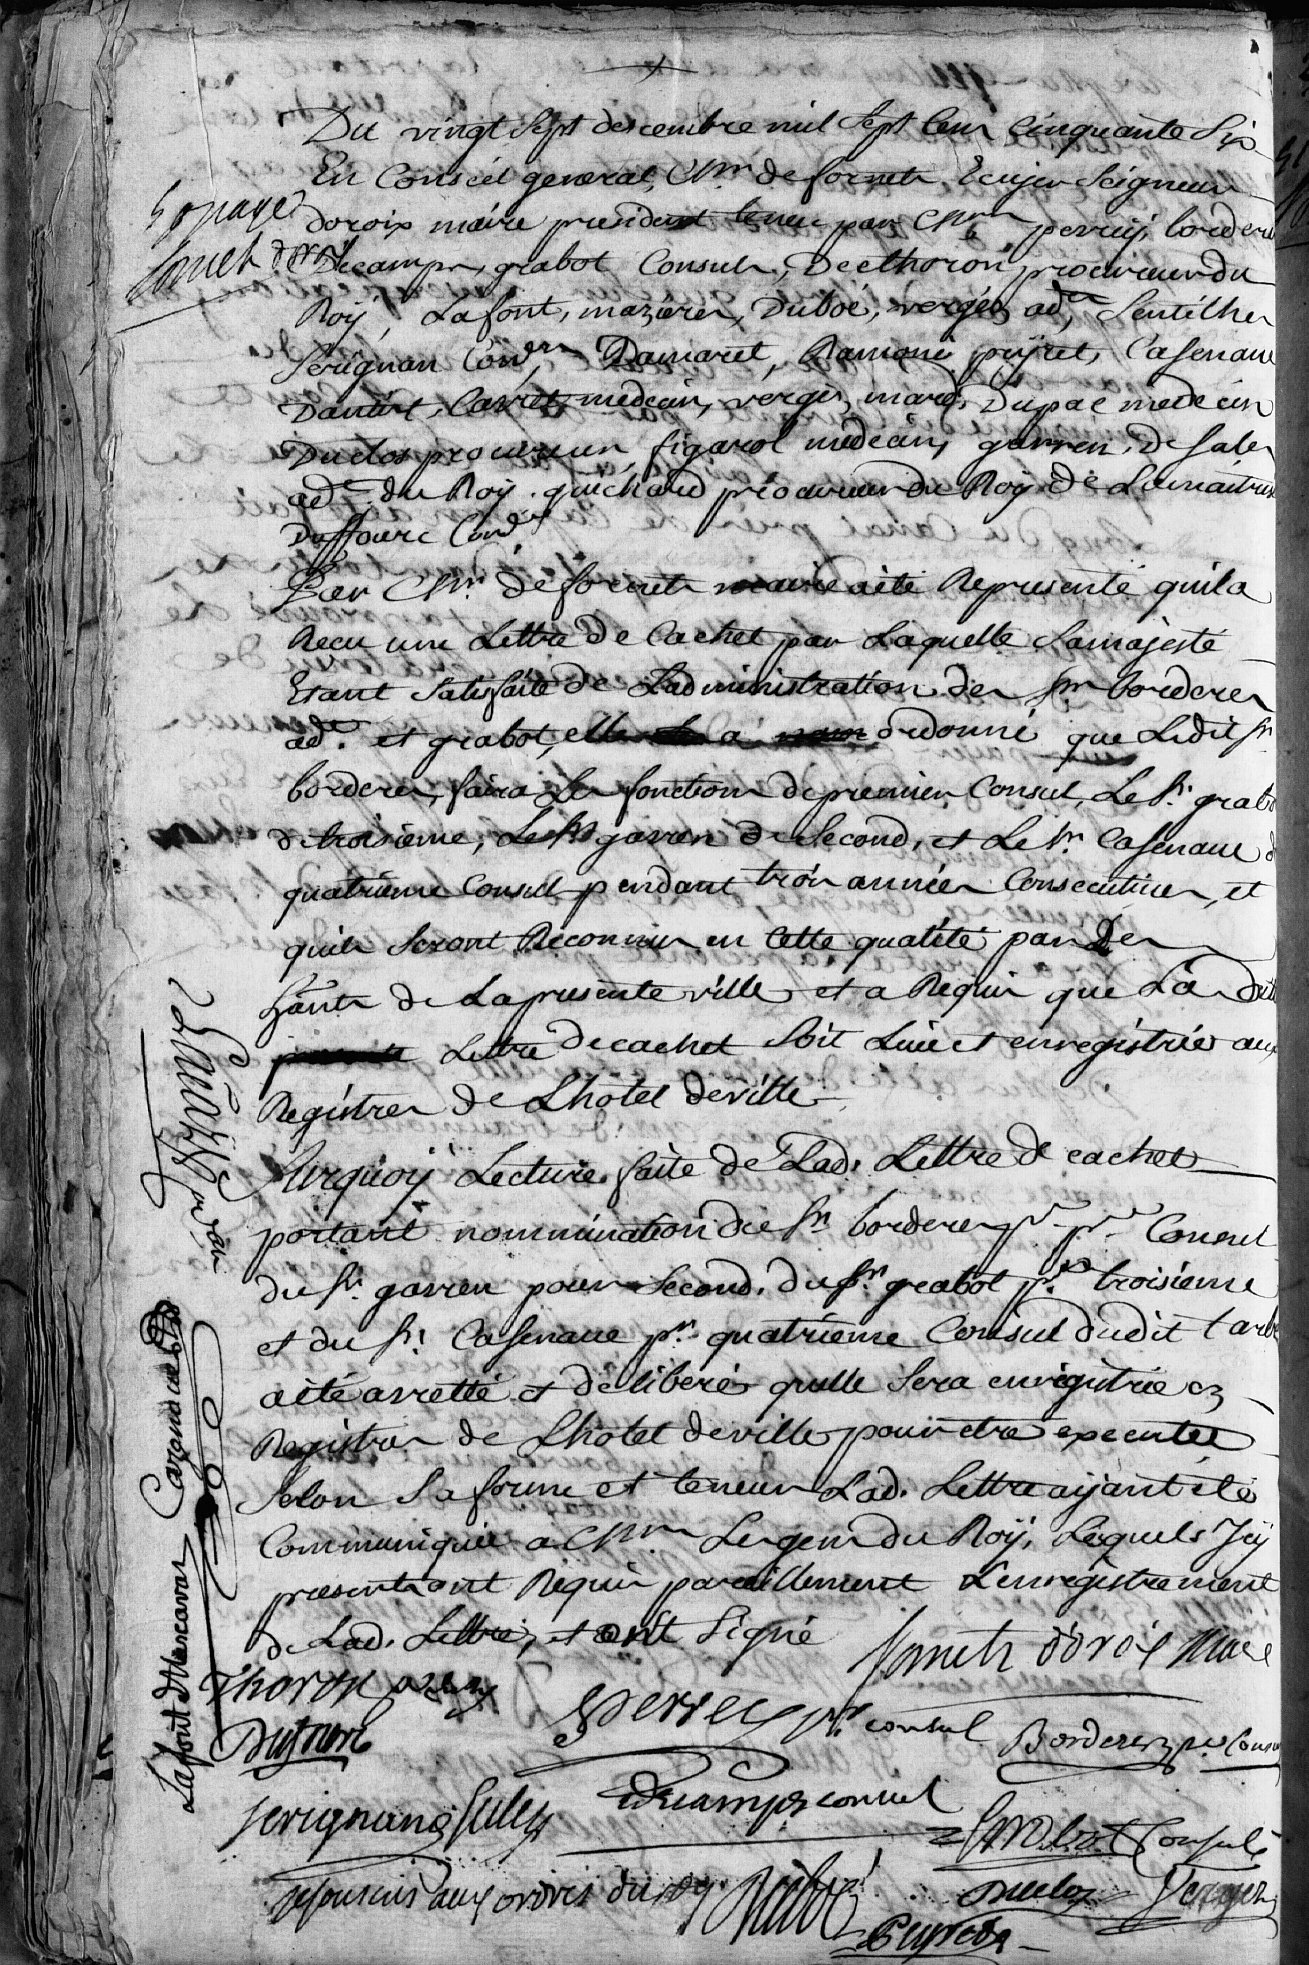 Du vingt Sept descembre mil Sept Cens Cinquante Six
En Conseil general, Mrs de fornets, Ecuyer Seigneur
doroix maire president tenu par Mrs perrey, borderes
Decamps, grabot Consuls, De thoron procureur du
Roÿ, Lafont, mazieres, Duboé, verges adt, Sentilhes
Serignan Condr, Damaret, Ramoné peÿret, Casenaue
Dantist, Carrets medecin, verges mard, Dupac medecin
Duclos procureur, figarol medecin, garren, De Sales
adt du Roÿ. guichard procureur du Roÿ de Lamaitrise
Duffourc Condr
Par Mr. de fornets maire aété Representé quila
Recu une Lettre de Cachet par Laquelle Samajesté
Etant Satisfaite de Ladministration des srs borderes
adt. et grabot, elle a ordonné que Ledit sr
borderes, faira Les fonctions de premier Consul, Le sr. grabot
de troisieme, Le sr garren de Second, et Le sr. Casenaue de
quatrieme Consul pendant trois années Consecutives, et
quils Seront Reconnus en Cette qualité par Les
hants de Lapresente ville et a Requis que La ditte
Lettre de cachet Soit Luë et enregistrée aux
Registres de Lhotel deville
Surquoÿ Lecture faite de Lad. Lettre de cachet
portant nommination du sr borderes pr pr Consul
du sr. garren pour Second. du sr. grabot pr. troisieme
et du sr. Casenaue pr. quatrieme Consul dudit tarbe
aété arretté et deliberé quelle Sera enregistrée ez
Registres de Lhotel deville pour etre executée
Selon Sa forme et teneur Lad. Lettre aÿant été
Communiquée a Mrs Les gens du Roÿ, Lesquels Icÿ
presents ont Requis pareillement Lenregistrement
de Lad. Lettre, et ont Signé
fornets d'oroix maire
Thoron
Perrey pr consul
Borderes pr Consul
Dufourc
Decamps consul
Serignan
Grabot Consul
aux ordres du roy
Duboé
Duclos
Verges
Peyrede
Lafont d'Mascaras
Cazenaue